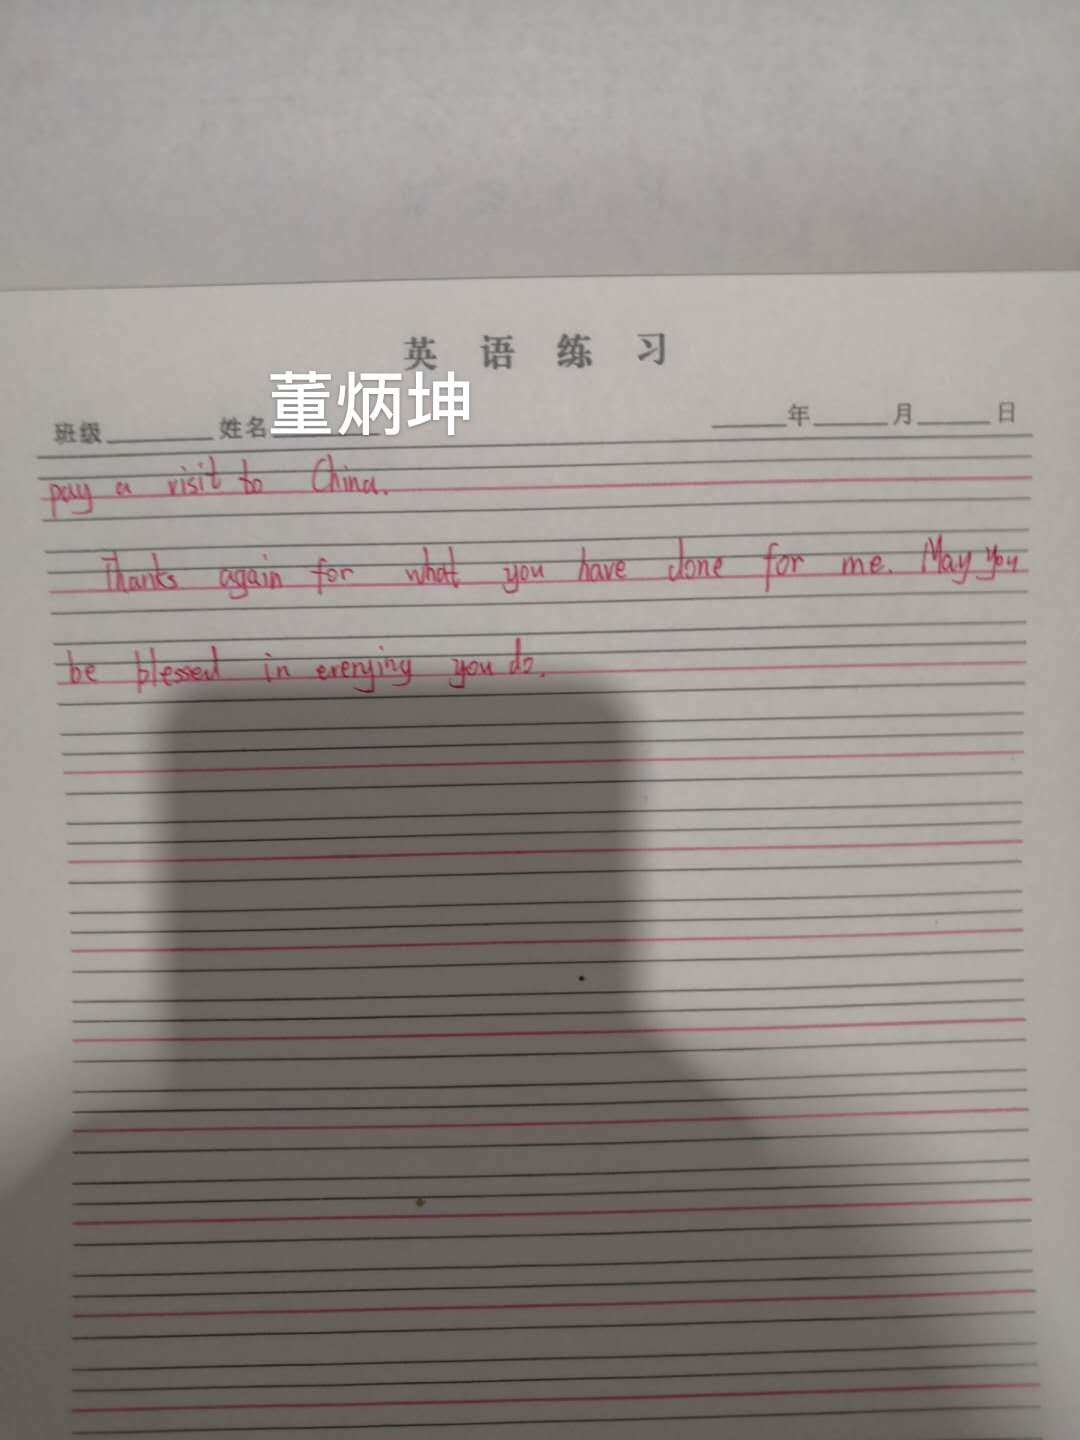 英语练习
董炳坤
班级 姓名 年 月 日
pay a visit to China.
Thanks again for what you have done for me. May you
be blessed in erenying you do.